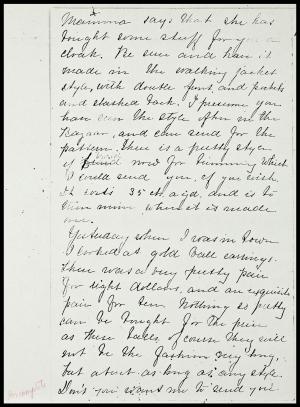 Mamma says that she has
bought some stuff for you a
cloak. Be sure and have it
made in the walking jacket
style, with double front, and pockets
and slashed back. I presume you
have seen the style often in the
Bazaar, and can send for the
pattern. There is a pretty style
of braid now for trimming which
I could send you, if you wish.
It costs 35 cts. a yd. and is to
trim mine, when it is made
over.
Yesterday when I was in town
I looked at gold ball earrings.
There was a very pretty pair
for eight dollars, and an exquisite
pair for ten. Nothing so pretty
can be bought for the price
as these balls, of course they will
not be the fashion very long,
but about as long as any style.
Don't you want me to send you
Incomplete